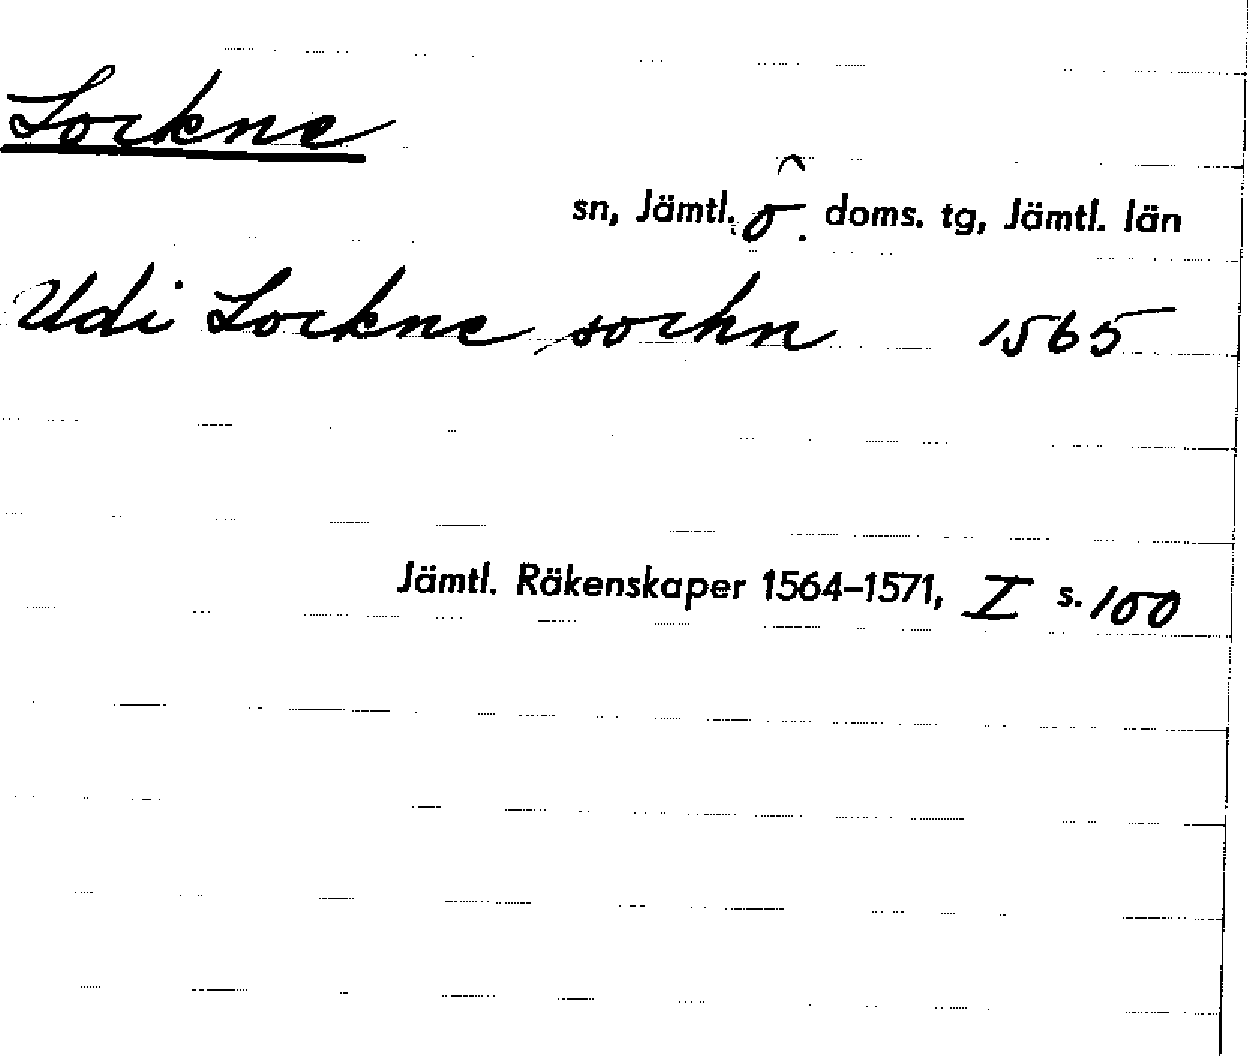 Lockne
sn, Jämtl. ö. doms. tg, Jämtl. län
Udi Lockne sochn 1565
Jämtl. Räkenskaper 1564–1571, I s. 100